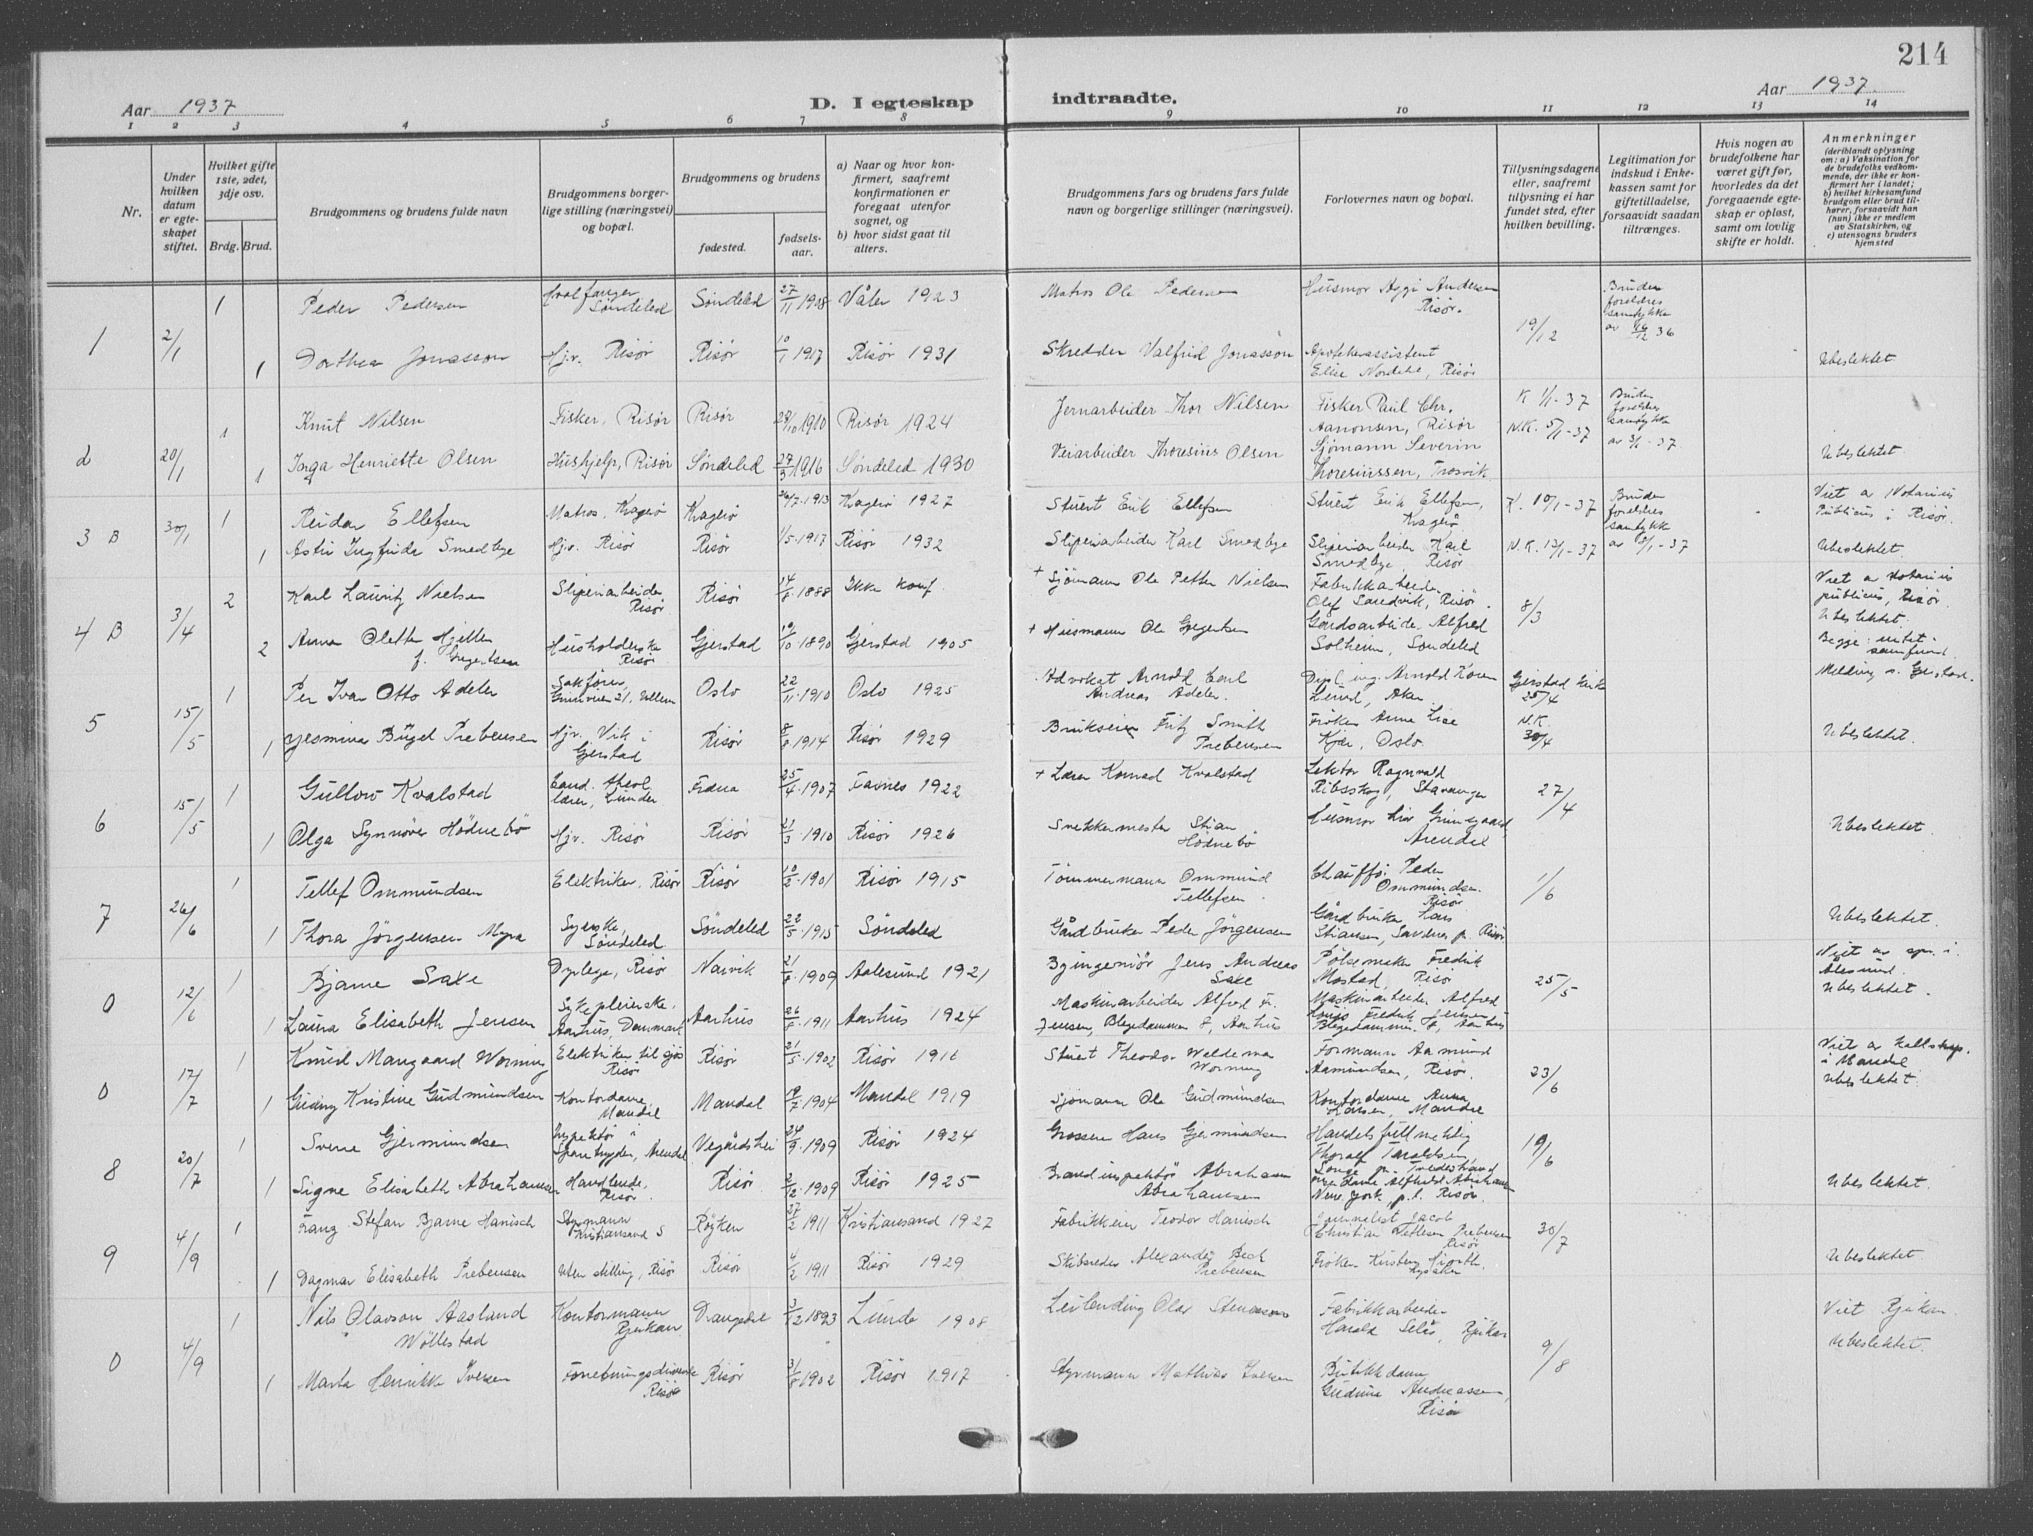 214
Aar 1937
D. I egteskap indtraadte.
Aar 1937
1 2 3 4 5 6 7 8 9 10 11 12 13 14
Nr.
Under hvilken datum er egteskapet stiftet.
Hvilket gifte 1ste, 2det, 3dje osv.
Brdg. Brud.
Brudgommens og brudens fulde navn
Brudgommens borgerlige stilling (næringsvei) og bopæl.
Brudgommens og brudens
fødested. fødselsaar.
a) Naar og hvor konfirmert, saafremt konfirmationen er foregaat utenfor sognet, og
b) hvor sidst gaat til alters.
Brudgommens fars og brudens fars fulde navn og borgerlige stillinger (næringsvei).
Forlovernes navn og bopæl.
Tillysningsdagene eller, saafremt tillysning ei har fundet sted, efter hvilken bevilling.
Legitimation for indskud i Enkekassen samt for giftetilladelse, forsaavidt saadan tiltrænges.
Hvis nogen av brudefolkene har været gift før, hvorledes da det foregaaende egteskap er opløst, samt om lovlig skifte er holdt.
Anmerkninger
(deriblandt oplysning om: a) Vaksination for de brudefolks vedkommende, der ikke er konfirmert her i landet; b) hvilket kirkesamfund brudgom eller brud tilhører, forsaavidt han (hun) ikke er medlem av Statskirken, og c) utensogns bruders hjemsted
1 2/1 1 Peder Pedersen Hvalfanger Søndeled Søndeled 27/11 1908 Våler 1923 Matros Ole Pedersen Husmor Aggi Andersen Risør. 19/12 Bruden foreldres samtykke av 16/12 36
1 Dorthea Jonasson Hjv. Risør Risør 10/1 1917 Risør 1931 Skredder Valfrid Jonasson Apotekerassistent Elise Nordbø, Risør Ubeslektet.
2 20/1 1 Knut Nilsen Fisker, Risør Risør 28/10 1910 Risør 1924 Jernarbeider Thor Nilsen Fisker Paul Chr. Aanonsen, Risør K. 1/1-37 N.K. 5/1-37 Bruden foreldres samtykk av 3/1-37
1 Inga Henriette Olsen Hushjelp, Risør Søndeled 27/3 1916 Søndeled 1930 Veiarbeider Thoresius Olsen Sjømann Severin Thoresiussen, Trosvik Ubeslektet.
3 B 30/1 1 Reidar Ellefsen Matros, Kragerø Kragerø 26/7 1913 Kragerø 1927 Stuert Erik Ellefsen Stuert Erik Ellefsen, Kragerø K. 10/1-37 Bruden foreldres samtykk av 5/1-37 Viet av Notarius Publicus i Risør.
1 Astri Ingfrida Smedbye Hjv. Risør Risør 1/5 1917 Risør 1932 Sliperiarbeider Karl Smedbye Sliperiarbeider Karl Smedbye, Risør N.K. 17/1-37 Ubeslektet.
4 B 3/4 2 Karl Lauritz Nielsen Sliperiarbeider, Risør Risør 14/8 1888 Ikke konf. + Sjømann Ole Petter Nielsen Fabrikkarbeider Olaf Sandvik, Risør. 8/3 Viet av Notarius publicus, Risør.
2 Anna Olette Hjellen f. Gregertsen Husholderske Risør Gjerstad 19/10 1890 Gjerstad 1905 + Husmann Ole Gregertsen Gårdsarbeider Alfred Solheim, Søndeled Ubeslektet.
5 15/5 1 Per Ivar Otto Adeler Sakfører, Oslo 22/11 1910 Oslo 1925 Advokat Arnold Carl Andreas Adeler Dipl. ing. Arnold Koren Lund, Aker Gjerstad kirke 25/4 Melding s. Gjerstad.
1 Jesmina Bügel Prebensen Hjv. Vik i Gjerstad Risør 8/8 1914 Risør 1929 Brukseier Fritz Smith Prebensen Frøken Anne Lise Kjær, Oslo. N.K. 30/4 Ubeslektet.
6 15/5 1 Gullow Kvalstad Cand. theol. lærer, Lunder Fræna 25/4 1907 1922 + Lærer Konrad Kvalstad Lektor Ragnvald Ribsskog, Stavanger 27/4
1 Olga Synnøve Hødnebø Hjv. Risør Risør 21/3 1910 Risør 1926 Snekkermester Stian Hødnebø Husmor Liv Grimsgaard Arendal Ubeslektet.
7 26/6 1 Tellef Ommundsen Elektriker, Risør Risør 10/2 1901 Risør 1915 Tømmermann Ommund Tellefsen Chauffør Peder Ommundsen. Risør 1/6
1 Thora Jørgensen Myra Syerske, Søndeled Søndeled 22/5 1915 Søndeled Gårdbruker Peder Jørgensen Gårdbruker Lars Stiansen, Sandnes pr. Risør Ubeslektet.
0 12/6 1 Bjarne Saxe Dyrlege, Risør Narvik 21/8 1909 Aalesund 1921 Byingeniør Jens Andreas Saxe Pølsemaker Fredrik Mostad, Risør 25/5
1 Laura Elisabeth Jensen Sykepleierske. Aarhus, Danmark Aarhus 26/8 1911 Aarhus 1924 Maskinarbeider Alfred Fr. Jensen, Blegedammen 8, Aarhus Maskinarbeider Alfred Hans Fredrik Jensen Blegedammen 8, Aarhus Ubeslektet.
0 17/7 1 Knud Mangaard Worning Elektriker til sjøs Risør Risør 21/5 1902 Risør 1916 Stuert Theodor Waldemar Worning Formann Aamund Aamundsen, Risør. 23/6 Viet av i Mandal
1 Gudny Kristine Gudmundsen Kontordame, Mandal Mandal 9/7 1904 Mandal 1919 Sjømann Ole Gudmundsen Kontordame Anna Larsen, Mandal Ubeslektet.
8 20/7 1 Sverre Gjermundsen Inspektør i Sparetrygden, Arendal Vegårdshei 24/9 1909 Risør 1924 Grosserer Hans Gjermundsen Handelsfullmektig Thoralf Taraldsen, Songe pr. Tvedestrand 19/6
1 Signe Elisabeth Abrahamsen Handlende, Risør. Risør 2/12 1909 Risør 1925 Brandinspektør Abraham Abrahamsen New York p.t. Risør. Ubeslektet.
9 4/9 1 Franz Stefan Bjarne Hanisch Styrmann Kristiansand S Røyken 27/2 1911 Kristiansand 1927 Fabrikkeier Teodor Hanisch Journalist Jacob Christian Detlefsen Prebensen Risør 30/7
1 Dagmar Elisabeth Prebensen Uten stilling, Risør Risør 4/2 1911 Risør 1929 Skibsreder Alexander Beck Prebensen Frøken Kirsten Hjorth. Lysaker Ubeslektet.
0 4/9 1 Nils Olavson Aasland Wøllestad Kontormann Rjukan Drangedal 3/12 1893 Lunde 1908 Leilending Olav Stenerson Fabrikkarbeider Harald Selås, Rjukan 9/8 Viet Rjukan.
1 Marta Henrikke Iversen Forretningsdrivende Risør Risør 31/8 1902 Risør 1917 Styrmann Mathias Iversen Butikkdame Gudrun Andreassen, Risør Ubeslektet.